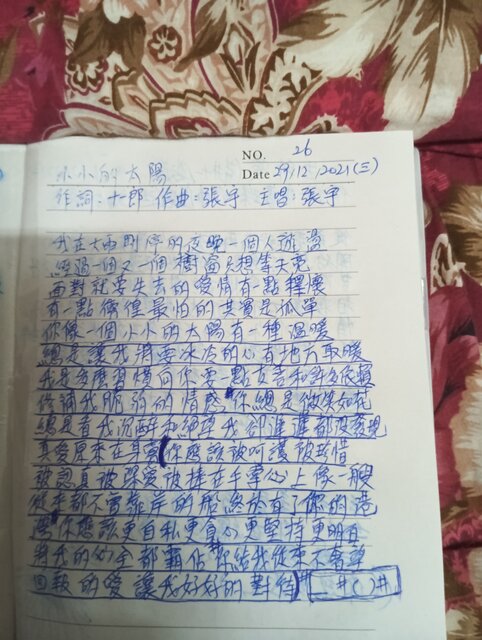 NO. 26
小小的太陽 Date 29/12/2021(三)
作詞:十一郎 作曲:張宇 主唱:張宇
我在大雨剛停的夜晚一個人遊盪
經過一個又一個樹窩只想等天亮
面對就要失去的愛情有一點釋懷
有一點徬徨最怕的其實是孤單
你像一個小小的太陽有一種溫暖
總是讓我將要冰冷的心有地方取暖
我是多麼習慣向你要一點友善和許多依賴
修補我脆弱的情感#你總是微笑如花
總是看我沉醉和絕望我卻遲遲都沒發現
真愛原來在身旁(你應該被呵護被珍惜
被認真被深愛被捧在手掌心上像一艘
從來都不曾靠岸的船終於有了你的港
灣#你應該更自私更貪心更堅持更明白
將我的心全都霸佔#你給我從來不奢望
回報的愛讓我好好的對待)# #( )#